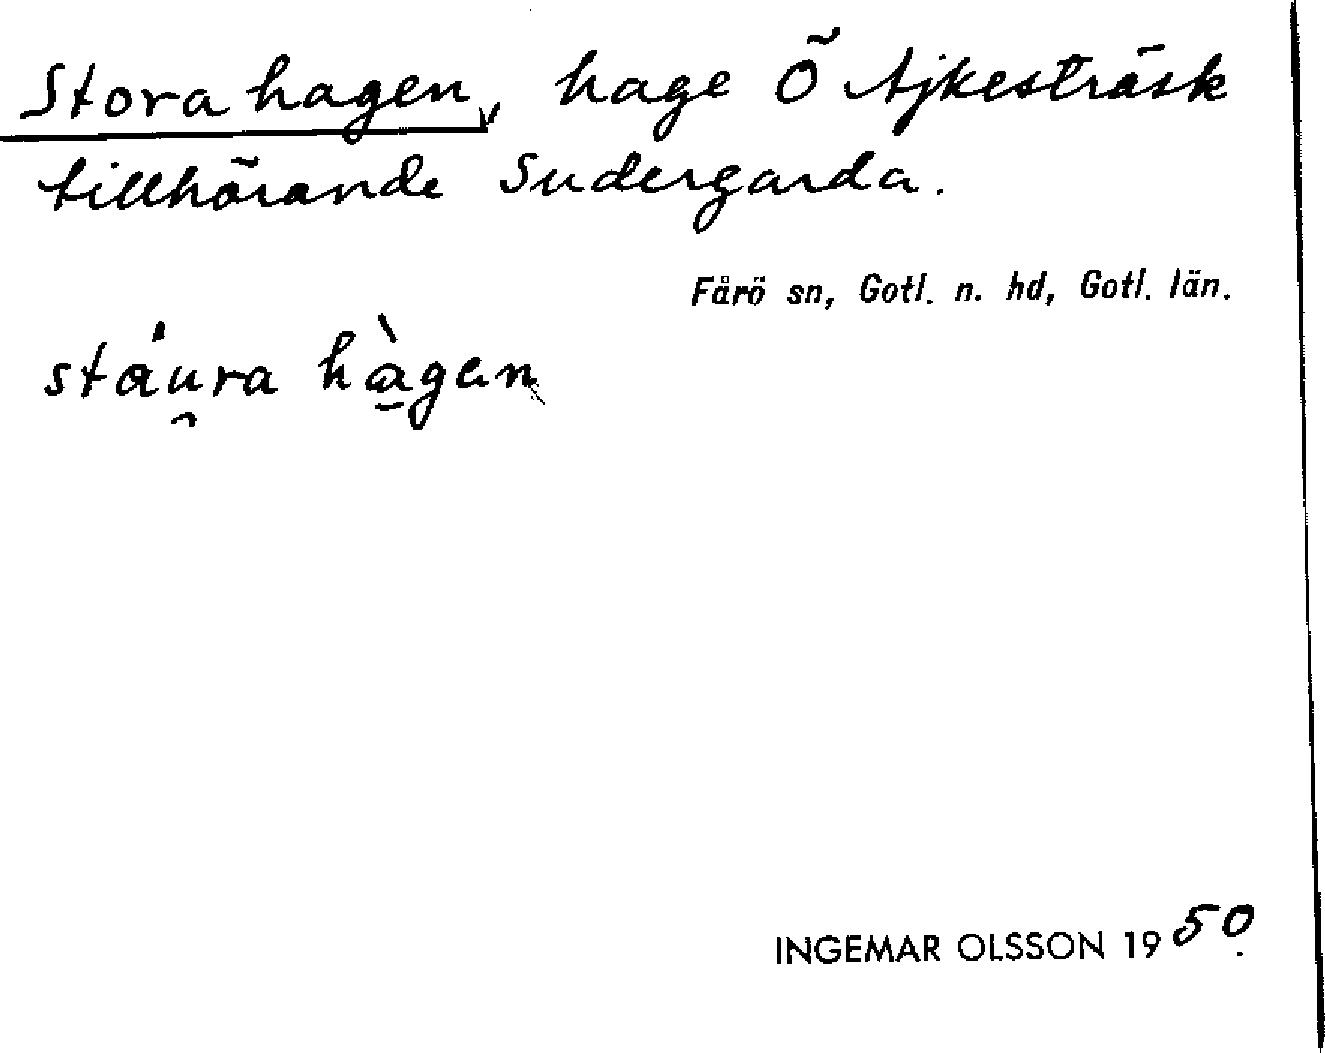 Stora hagen, hage Ö Ajkesträsk
tillhörande Sudergarda.
Fårö sn, Gotl. n. hd, Gotl. län.
stáu̯ra hàgen
INGEMAR OLSSON 1950.